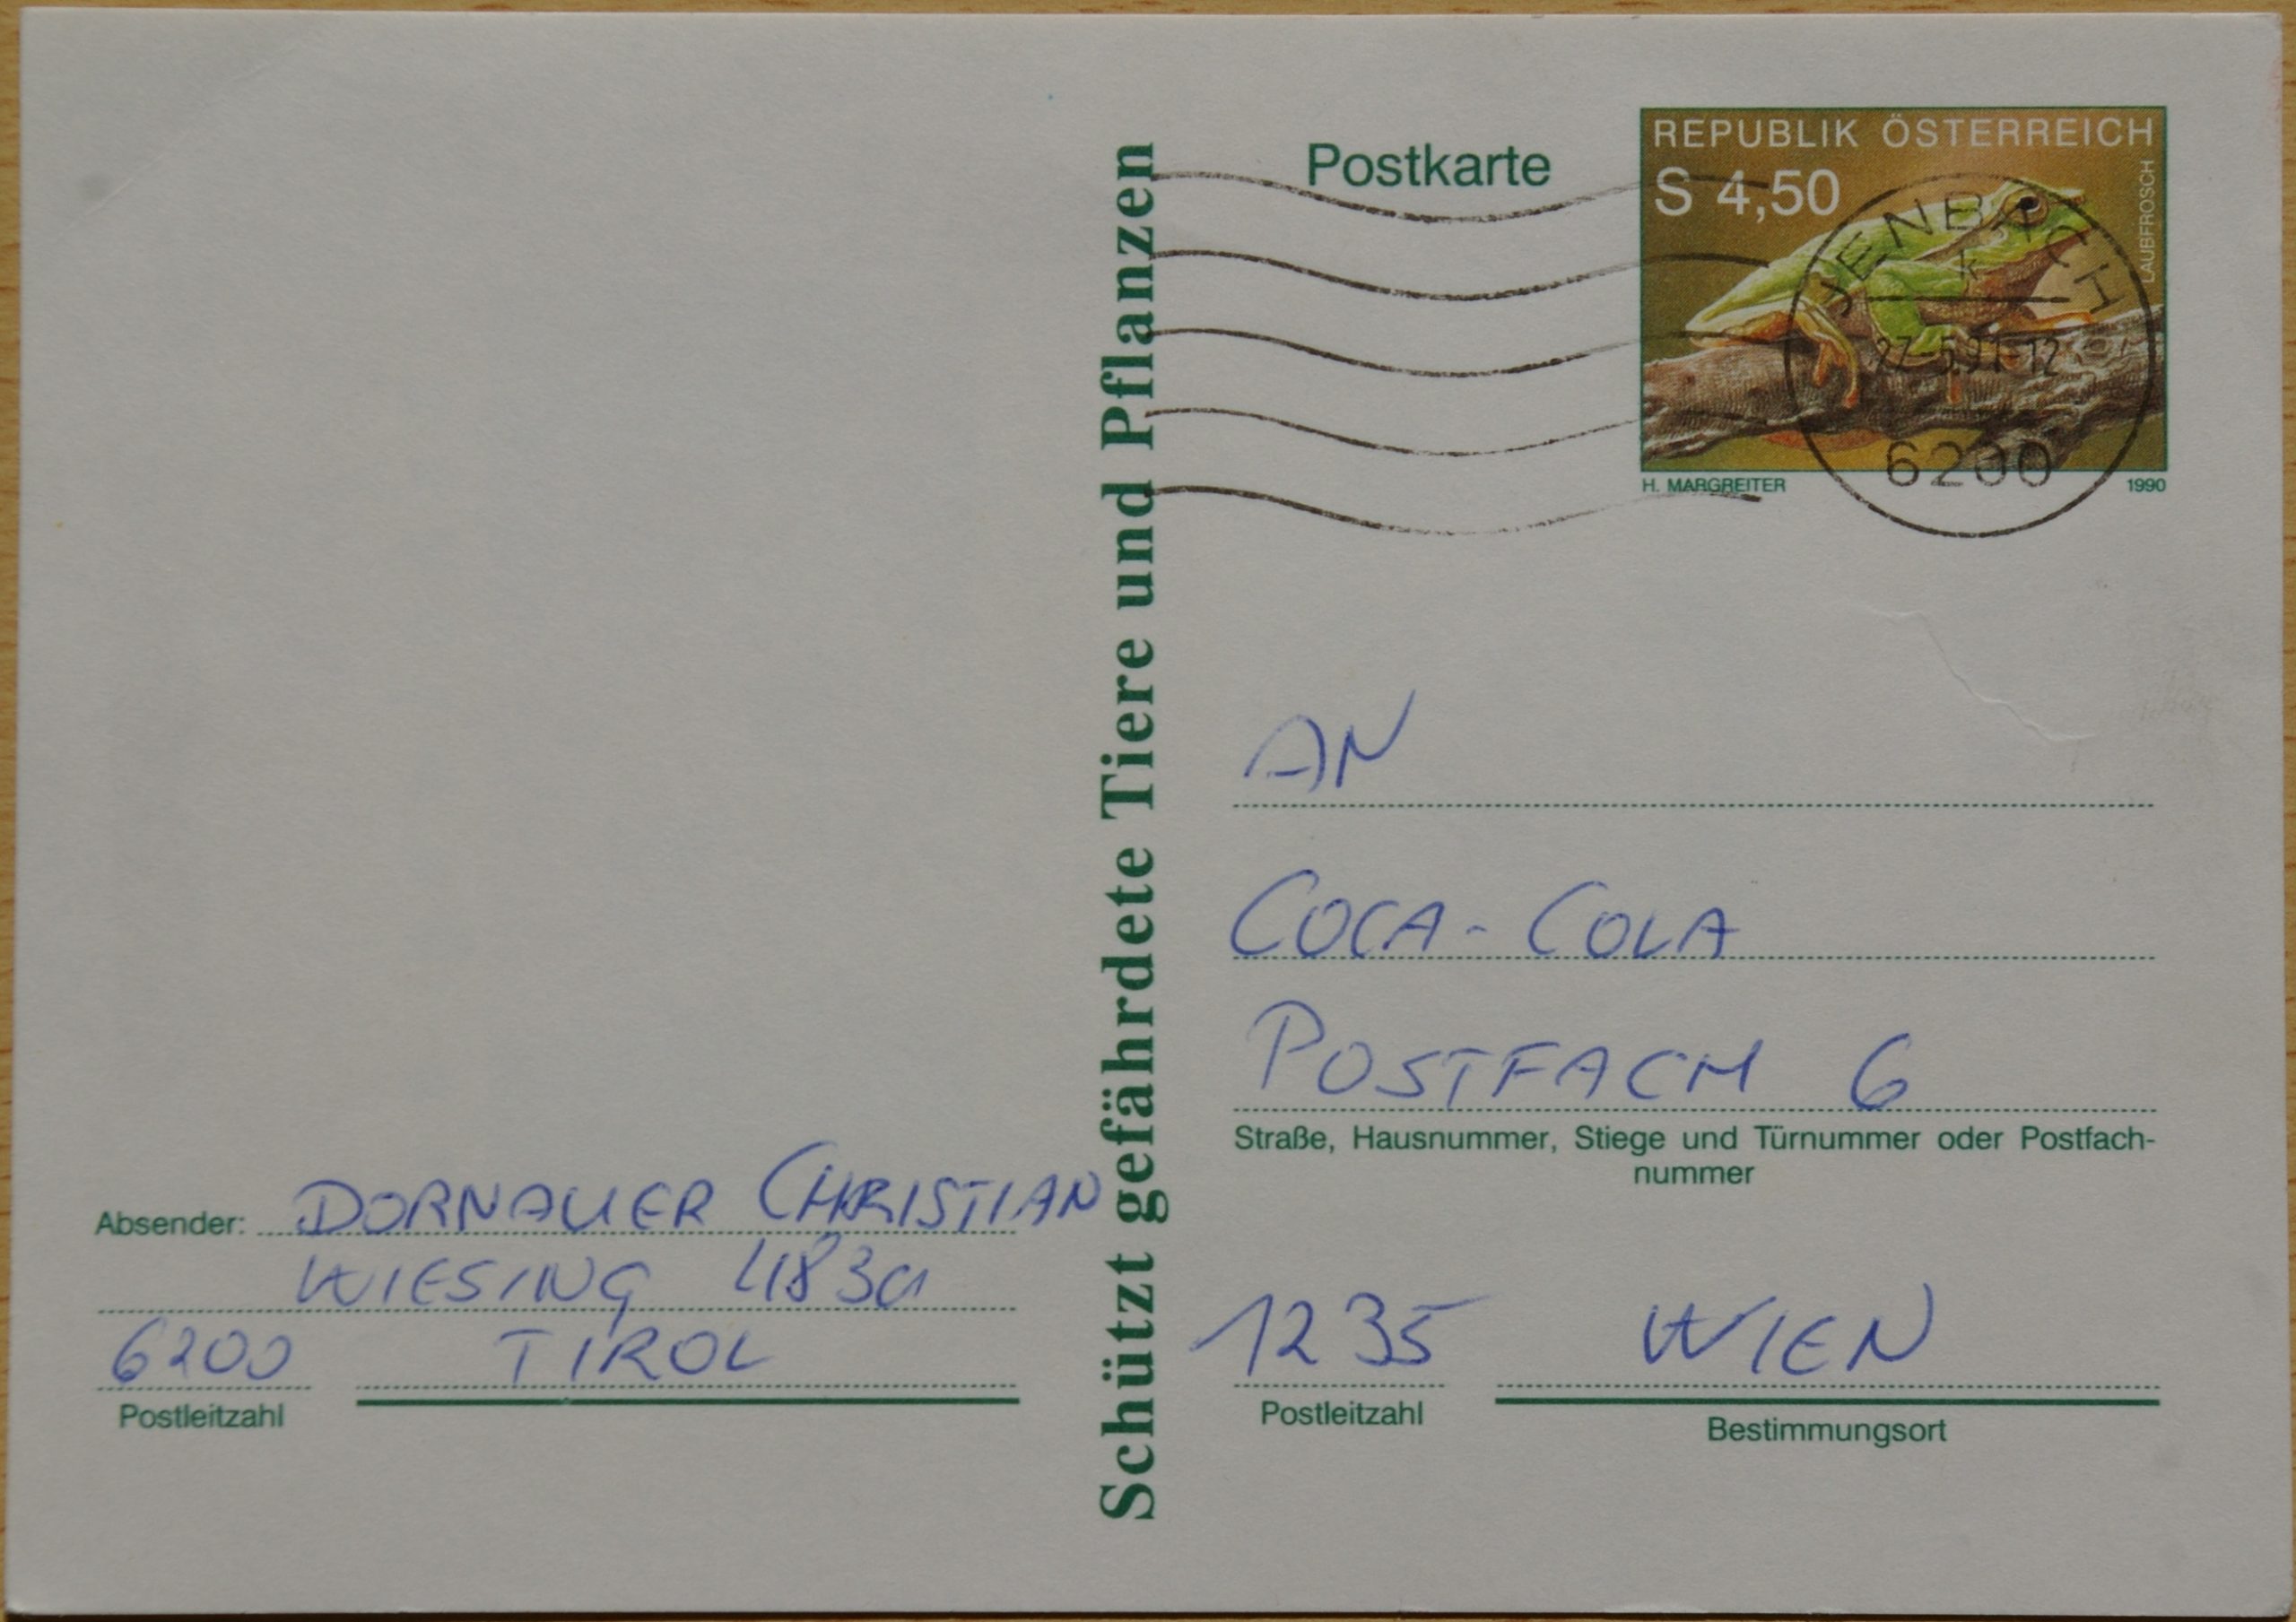 Postkarte
REPUBLIK ÖSTERREICH
S 4,50
LAUBFROSCH
JENBACH
27.-5.91-12
6200
H. MARGREITER
1990
Schützt gefährdete Tiere und Pflanzen
AN
COCA-COLA
POSTFACH 6
Straße, Hausnummer, Stiege und Türnummer oder Postfach-
nummer
1235 WIEN
Postleitzahl
Bestimmungsort
Absender: DORNAUER CHRISTIAN
WIESING 483a
6200 TIROL
Postleitzahl